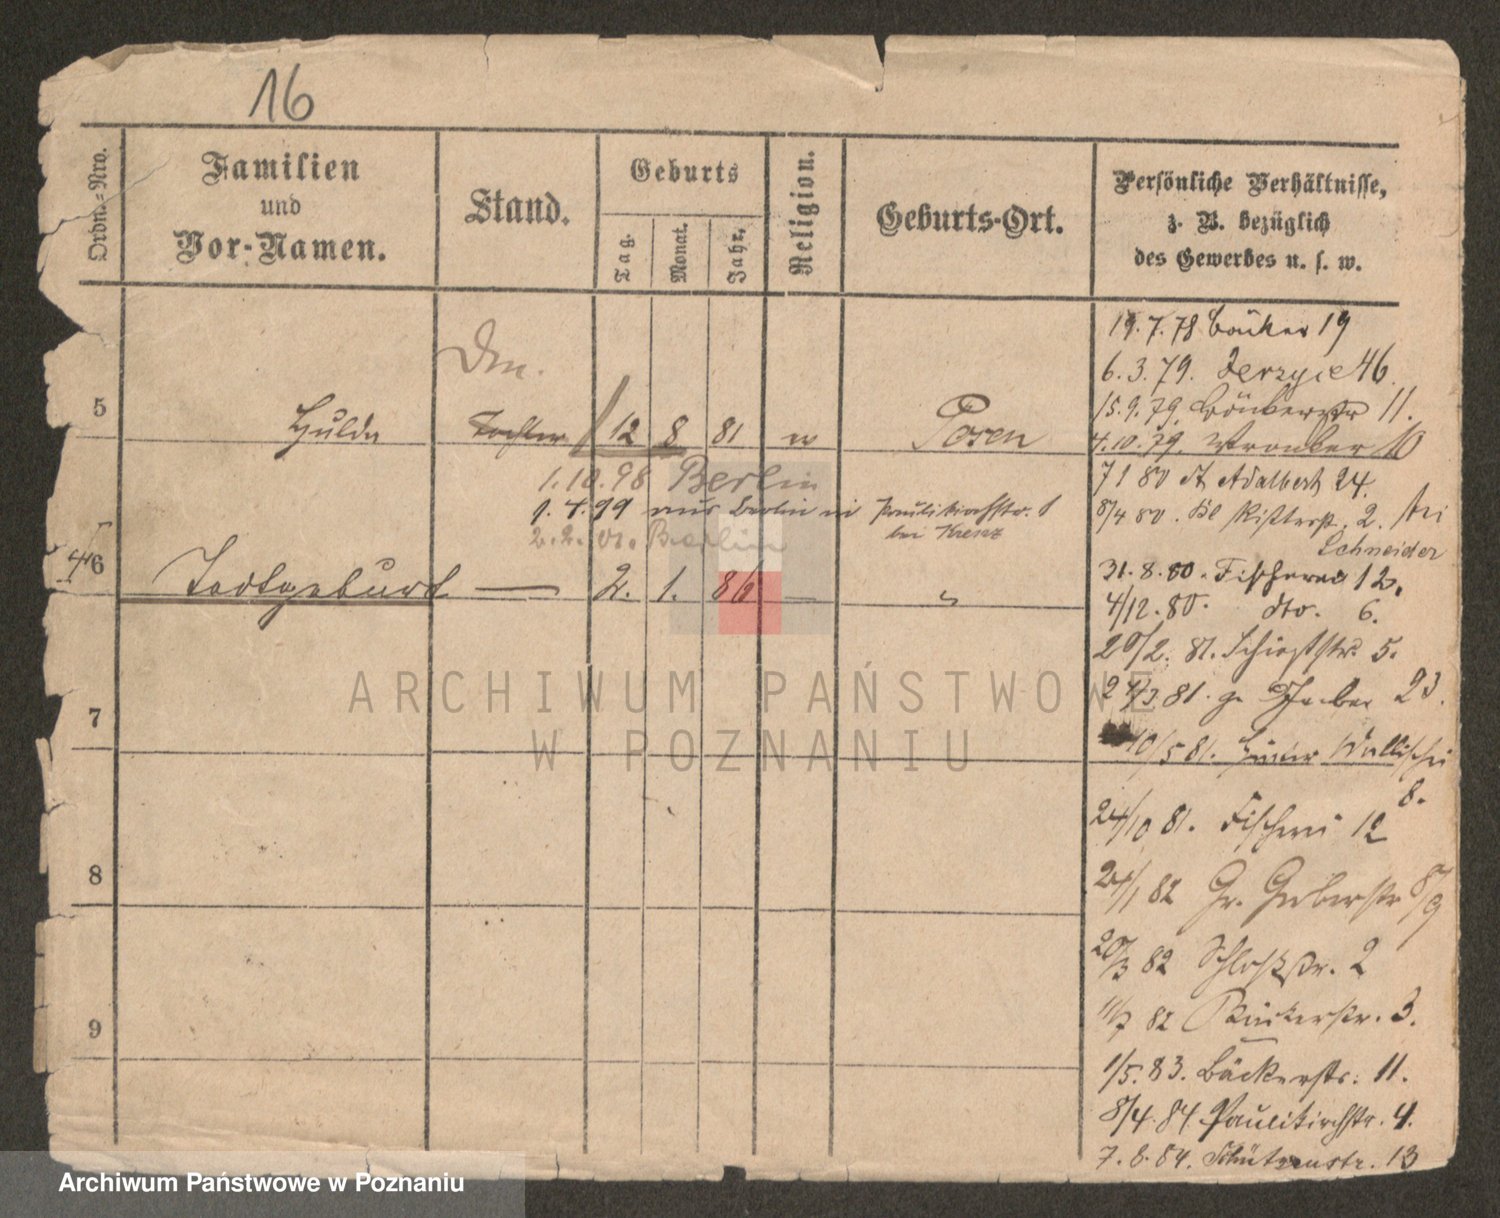 16
Ordn.-Nro.
Familien
und
Vor-Namen.
Stand.
Geburts
Tag.
Monat.
Jahr.
Religion.
Geburts-Ort.
Persönliche Verhältnisse,
z. B. bezüglich
des Gewerbes u. s. w.
5
Hulda Tochter 12 8 81 Posen
1.10.98 Berlin
1.4.99 aus Berlin Paulikirchstr.
bei Krenz
2.2.01. Berlin
6
Todtgeburt — 2. 1. 86 —
7
8
9
19.7.78 19
6.3.79. Jerzyce 46
15.9.79. 11.
4.10.79. Wronker 10
7 1 80 St Adalbert 24.
8/4 80. Kl Ritterstr. 2. bei
Schneider
31.8.80. Fischerei 12.
4/12.80. dto. 6.
20/2. 81. Schießstr. 5.
81. Gerber 23.
10/5 81. Hinter Wallischei
8.
24/10 81. Fischerei 12
24/1 82 Gr. Gerberstr 8/9
20/3 82 Schloßstr. 2
11/7 82 3.
1/5.83. Bäckerstr. 11.
8/4.84 Paulikirchstr. 4.
7.8.84. Schützenstr. 13
ARCHIWUM PAŃSTWOWE
W POZNANIU
Archiwum Państwowe w Poznaniu